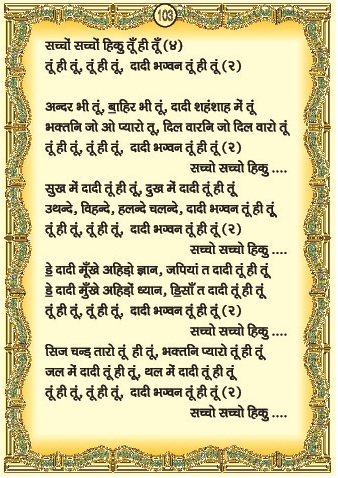 103
सच्चों सच्चों हिकु तूँ ही तूँ (४)
तूं ही तूं, तूं ही तूं, दादी भग्वन तूं ही तूं (२)
अन्दर भी तूं, बा॒हिर भी तूं, दादी शहंशाह में तूं
भक्तनि जो ओ प्यारो तू, दिल वारनि जो दिल वारो तूं
तूं ही तूं, तूं ही तूं, दादी भग्वन तूं ही तूं (२)
सच्चो सच्चो हिकु ....
सुख में दादी तूं ही तूं, दुख में दादी तूं ही तूं
उथन्दे, विहन्दे, हलन्दे चलन्दे, दादी भग्वन तूं ही तूं
तूं ही तूं, तूं ही तूं, दादी भग्वन तूं ही तूं (२)
सच्चो सच्चो हिकु ....
डे॒ दादी मूँखे अहिड़ो ज्ञान, जपियां त दादी तूं ही तूं
डे॒ दादी मुँखे अहिड़ों ध्यान, डि॒साँ त दादी तूं ही तूं
तूं ही तूं, तूं ही तूं, दादी भग्वन तूं ही तूं (२)
सच्चो सच्चो हिकु ....
सिज चन्ड्र तारो तूं ही तूं, भक्तनि प्यारो तूं ही तूं
जल में दादी तूं ही तूं, थल में दादी तूं ही तूं
तूं ही तूं, तूं ही तूं, दादी भग्वन तूं ही तूं (२)
सच्चो सच्चो हिकु ....